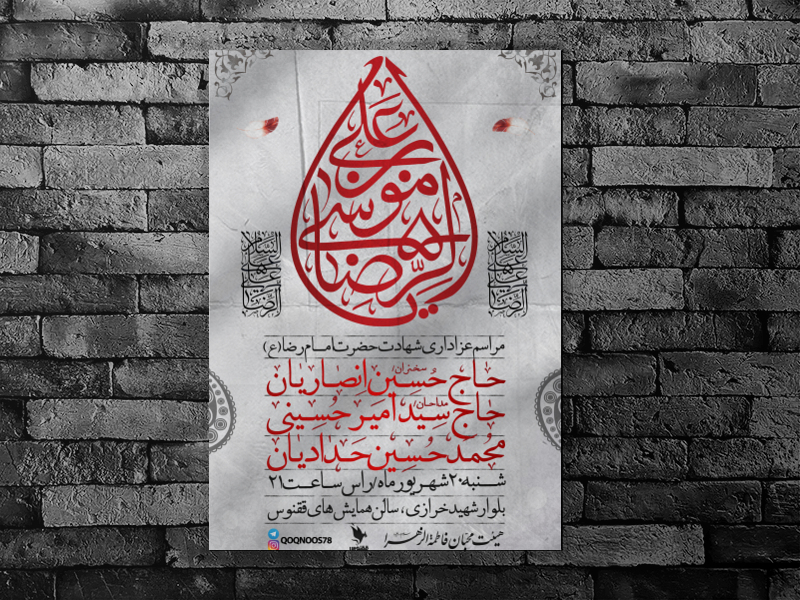 علی بن موسی الرضا
السلام علیک یا علی بن موسی الرضا
مراسم عزاداری شهادت حضرت امام رضا(ع)
سخنران/
حاج حسین انصاریان
مداحان/
حاج سید امیر حسینی
محمد حسین حدادیان
شنبه ۲۰ شهریور ماه/ راس ساعت ۲۱
بلوار شهید خرازی، سالن همایش های ققنوس
هیئت محبان فاطمة الزهرا
QOQNOOS78